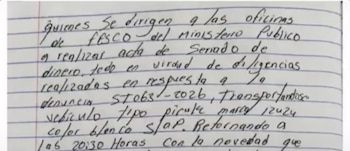 quienes se dirigen a las oficinas
de FPSCO del ministerio Publico
a realizar acta de Senado de
dinero, todo en virud de diligencias
realizadas en respuesta a la
denuncia STO63-2026, Transportandose
vehiculo tipo picute marca izuzu
color blanco S/OP. Retornando a
las 20:30 Horas con la novedad que